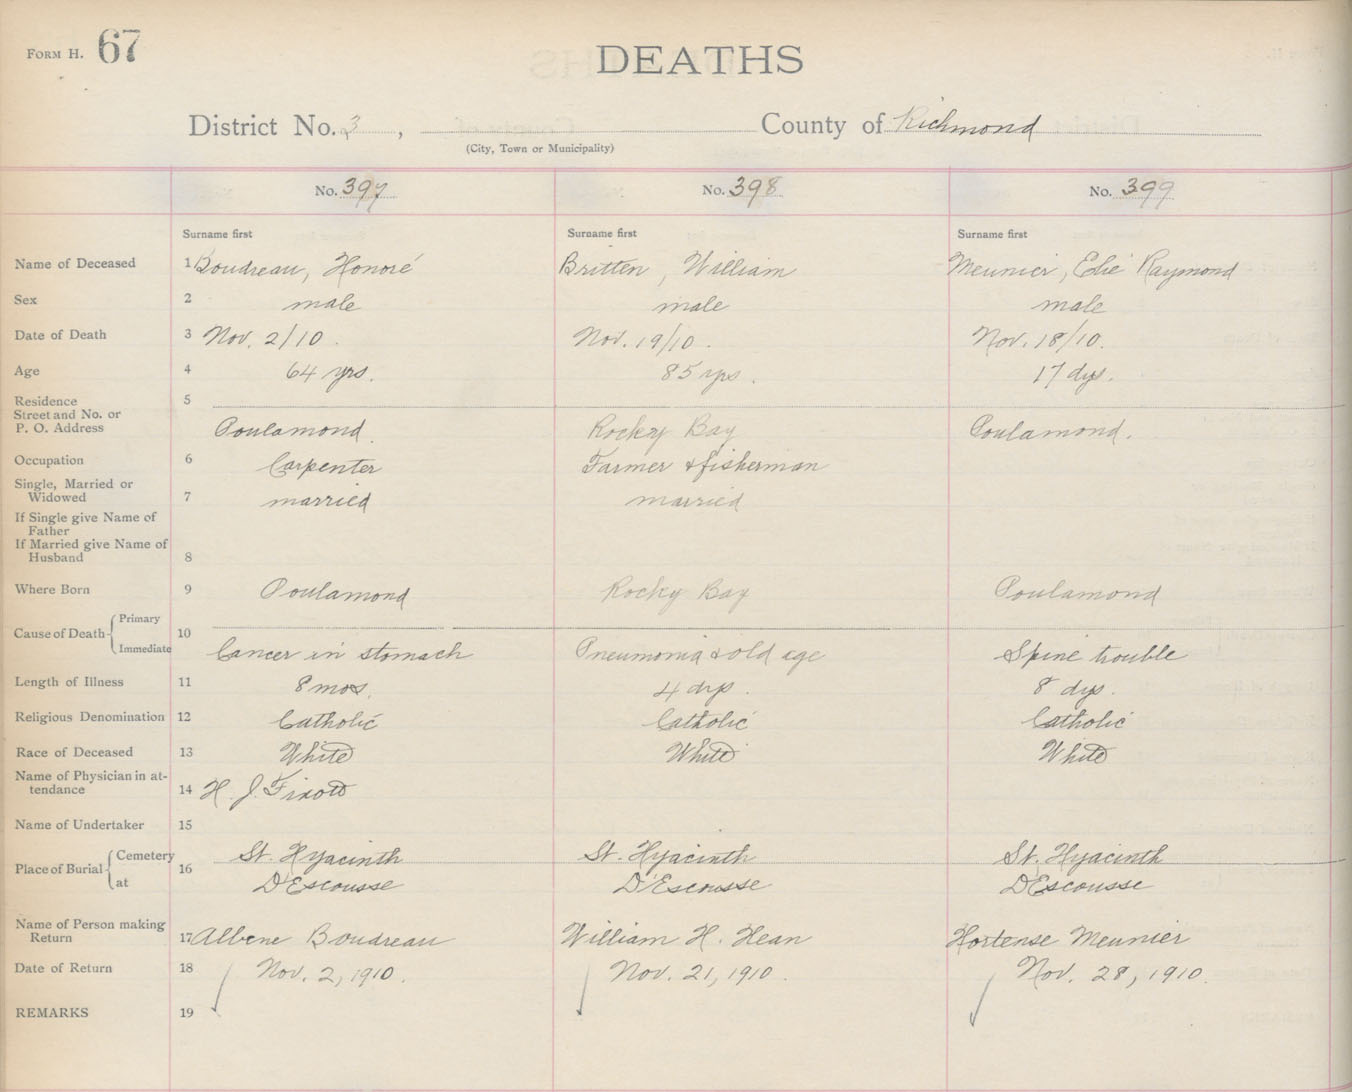 FORM H. 67
DEATHS
District No. 3, County of Richmond
(City, Town or Municipality)
No. 397 No. 398 No. 399
Surname first Surname first Surname first
Name of Deceased 1 Boudreau, Honoré Britten, William Meunier, Elié Raymond
Sex 2 male male male
Date of Death 3 Nov. 2/10. Nov. 19/10. Nov. 18/10.
Age 4 64 yrs. 85 yrs. 17 dys.
Residence 5
Street and No. or
P. O. Address Poulamond. Rocky Bay Poulamond.
Occupation 6 Carpenter Farmer & fisherman
Single, Married or
Widowed 7 married married
If Single give Name of
Father
If Married give Name of
Husband 8
Where Born 9 Poulamond Rocky Bay Poulamond
Cause of Death Primary 10
Immediate Cancer in stomach Pneumonia & old age Spine trouble
Length of Illness 11 8 mos. 4 dys. 8 dys.
Religious Denomination 12 Catholic Catholic Catholic
Race of Deceased 13 White White White
Name of Physician in at-
tendance 14 H. J. Fixott
Name of Undertaker 15
Place of Burial Cemetery 16 St. Hyacinth St. Hyacinth St. Hyacinth
at D'Escousse D'Escousse D'Escousse
Name of Person making
Return 17 Albene Boudreau William H. Hean Hortense Meunier
Date of Return 18 Nov. 2, 1910. Nov. 21, 1910. Nov. 28, 1910.
REMARKS 19